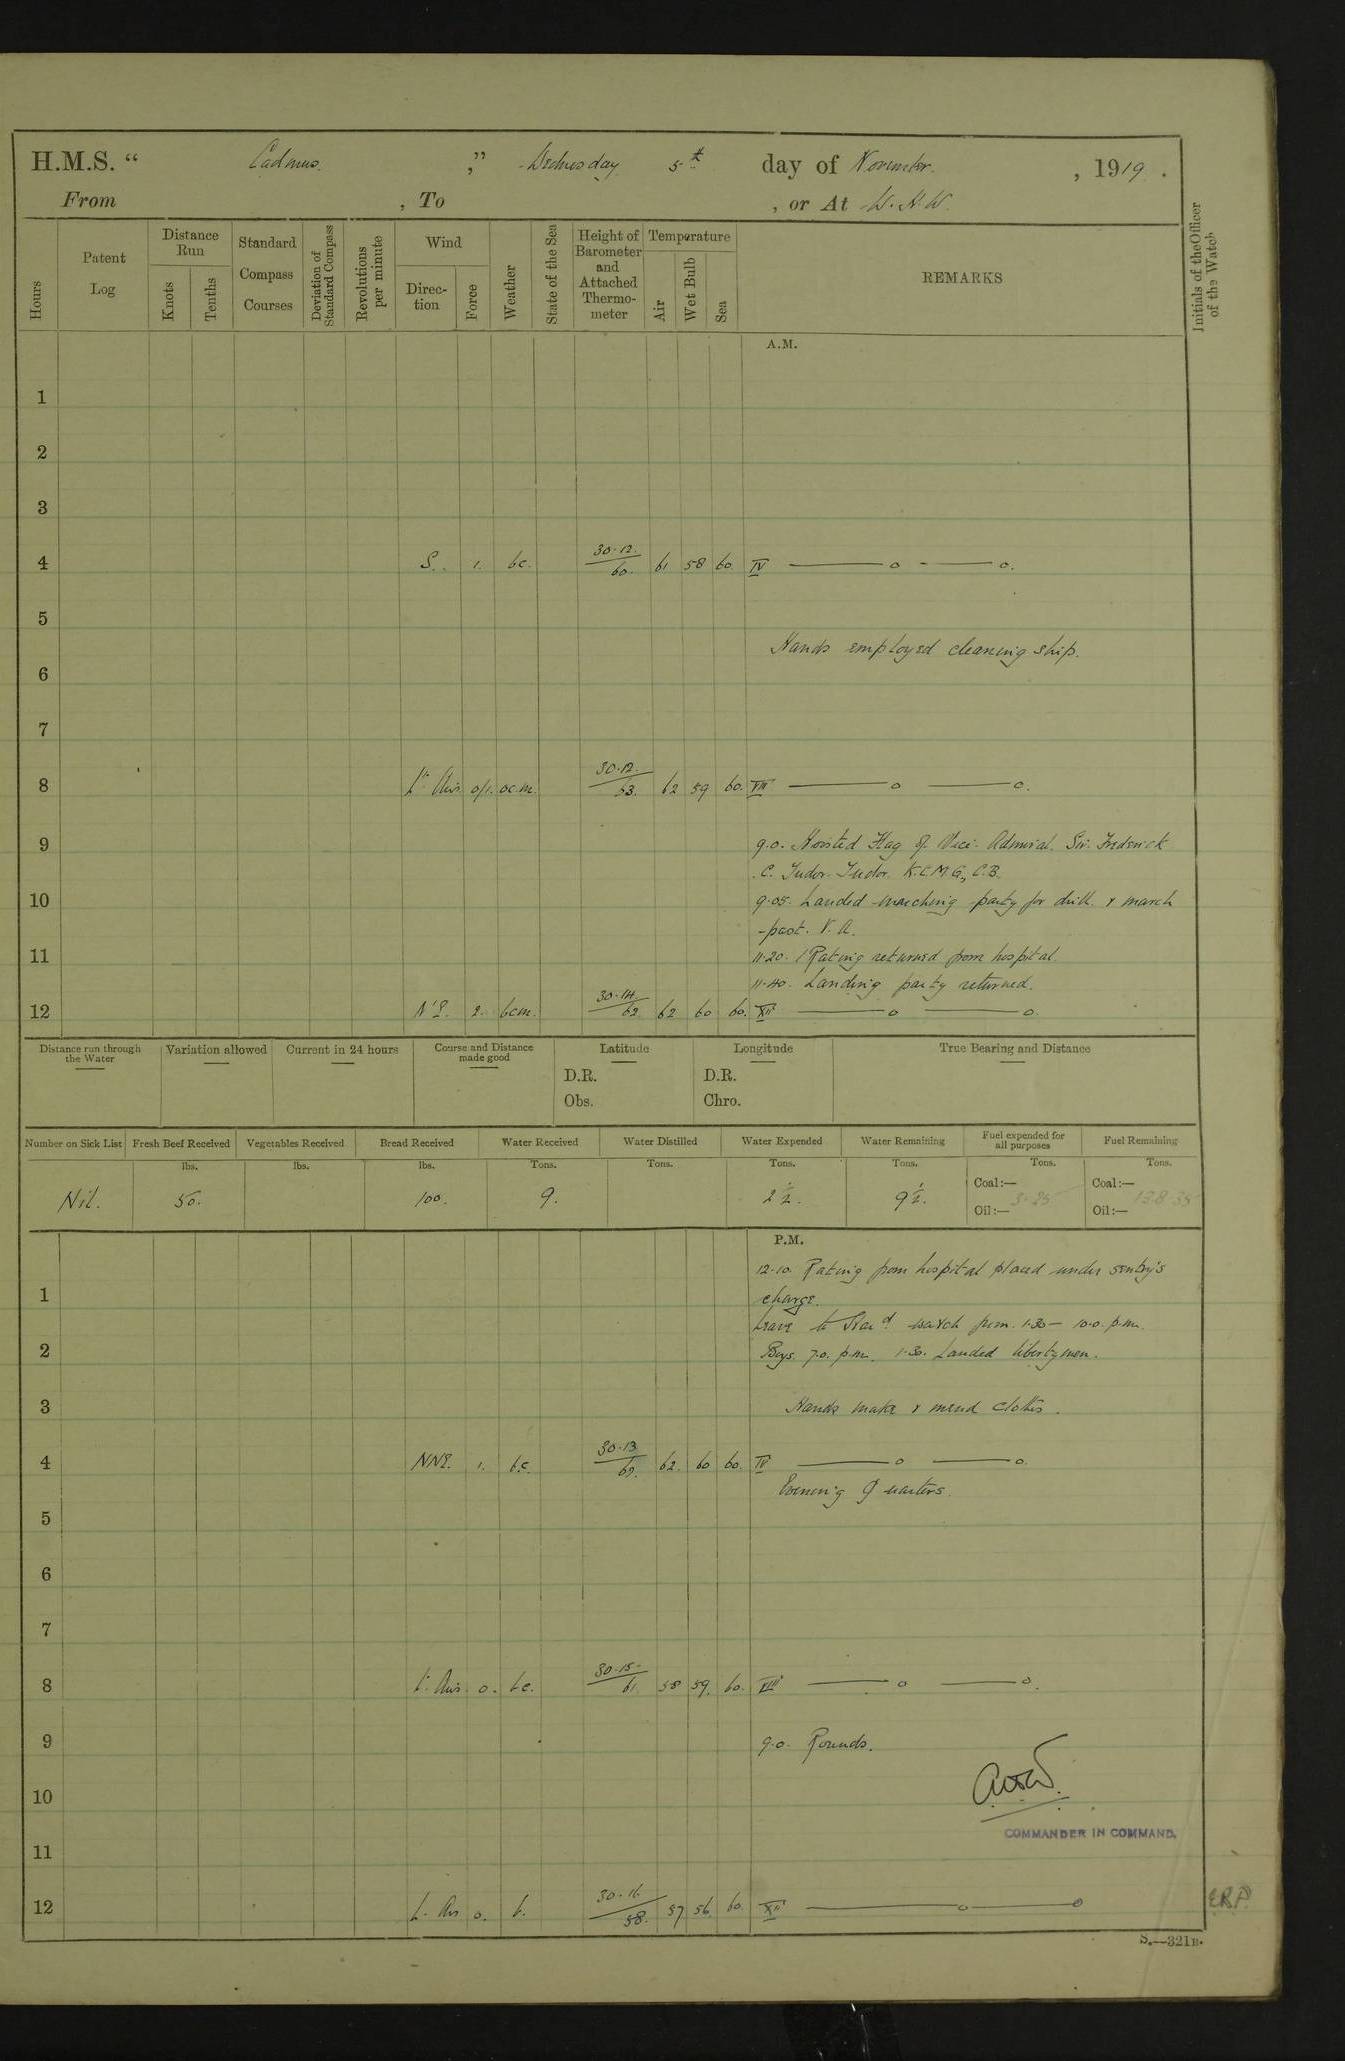 H.M.S. “ Cadmus. ,” Wednesday 5th day of November. , 1919 .
From , To , or At W.H.W.
Hours
Patent Log
Distance Run
Knots
Tenths
Standard Compass Courses
Deviation of Standard Compass
Revolutions per minute
Wind
Direction
Force
Weather
State of the Sea
Height of Barometer and Attached Thermometer
Temperature
Air
Wet Bulb
Sea
REMARKS
Initials of the Officer of the Watch
A.M.
1
2
3
4 S. 1. bc. 30.12. 60. 61 58 60. IV
5
Hands employed cleaning ship.
6
7
8 Lt Airs 0/1. oc.m. 30.12. 63. 62 59 60. VIII
9 9.0. Hoisted Flag of Vice. Admiral. Sir. Frederick
.C. Tudor. Tudor. K.C.M.G., C.B.
10 9.05. Landed marching party for drill. & march
-past. V.A.
11 11.20. 1 Rating returned from hospital.
11.40. Landing party returned.
12 N'E. 2. bcm. 30.14. 62. 62 60 60. XII
Distance run through the Water
Variation allowed
Current in 24 hours
Course and Distance made good
Latitude
D.R.
Obs.
Longitude
D.R.
Chro.
True Bearing and Distance
Number on Sick List Fresh Beef Received Vegetables Received Bread Received Water Received Water Distilled Water Expended Water Remaining Fuel expended for all purposes Fuel Remaining
lbs. lbs. lbs. Tons. Tons. Tons. Tons. Tons. Tons.
Nil. 50. 100. 9. 2 1/2. 9 1/2. Coal:— 3.25 Coal:— 138.35
Oil:— Oil:—
P.M.
12.10. Rating from hospital placed under sentry's
1 charge.
Leave to Starbd. watch from. 1.30 — 10.0. p.m.
2 Boys. 7.0. p.m. 1.30. Landed libertymen.
3 Hands make & mend clothes.
4 NNE. 1. b.c. 30.13. 62. 62. 60 60. IV
Evening Quarters.
5
6
7
8 Lt. Airs. 0. bc. 30.15. 61. 58 59. 60. VIII
9 9.0. Rounds.
10
COMMANDER IN COMMAND.
11
12 L. Airs 0. b. 30.16. 58. 57 56. 60. XII E.R.P.
S.—321B.